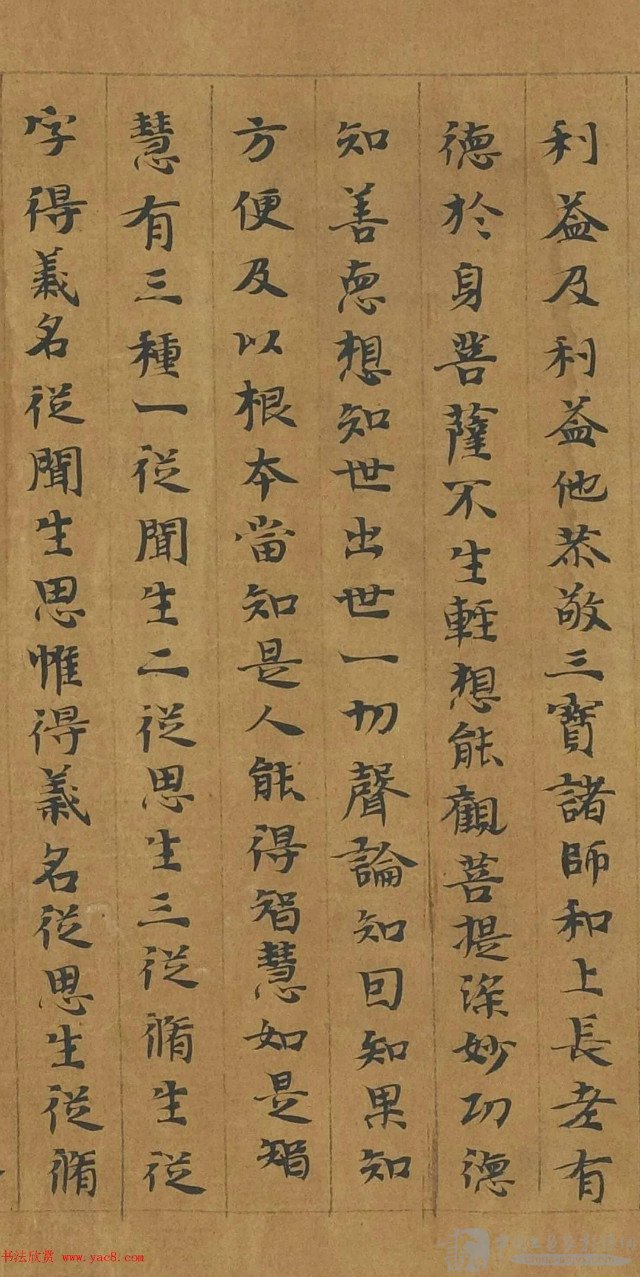 利益及利益他恭敬三寶諸師和上長老有
德於身菩薩不生輕想能觀菩提深妙功德
知善惡想知世出世一切聲論知因知果知
方便及以根本當知是人能得智慧如是智
慧有三種一從聞生二從思生三從脩生從
字得義名從聞生思惟得義名從思生從脩
书法欣赏 www.yac8.com